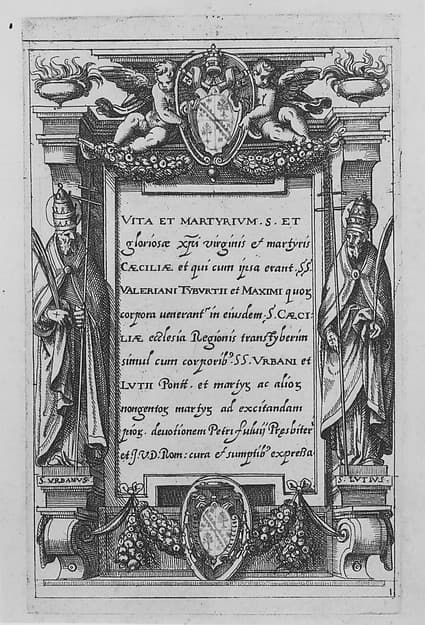 VITA ET MARTYRIUM . S . ET
gloriosæ xp̄i virginis & martyris
CÆCILIÆ et qui cum ipsa erant . SS.
VALERIANI TYBURTII et MAXIMI quoꝝ
corpora venerant^r in eiusdem . S. CÆCI:
LIÆ ecclesia Regionis transtyberim
simul cum corporib⁹ . SS. URBANI et
LUTII Pontt . et martyꝝ ac alioꝝ
nongentoꝝ martyꝝ ad excitandam
pioꝝ . devotionem Petri fulvii Presbiter
et J.V.D. Rom: cura et sumptib⁹ expressa
S. URBANUS.
S. LUTIUS.
1